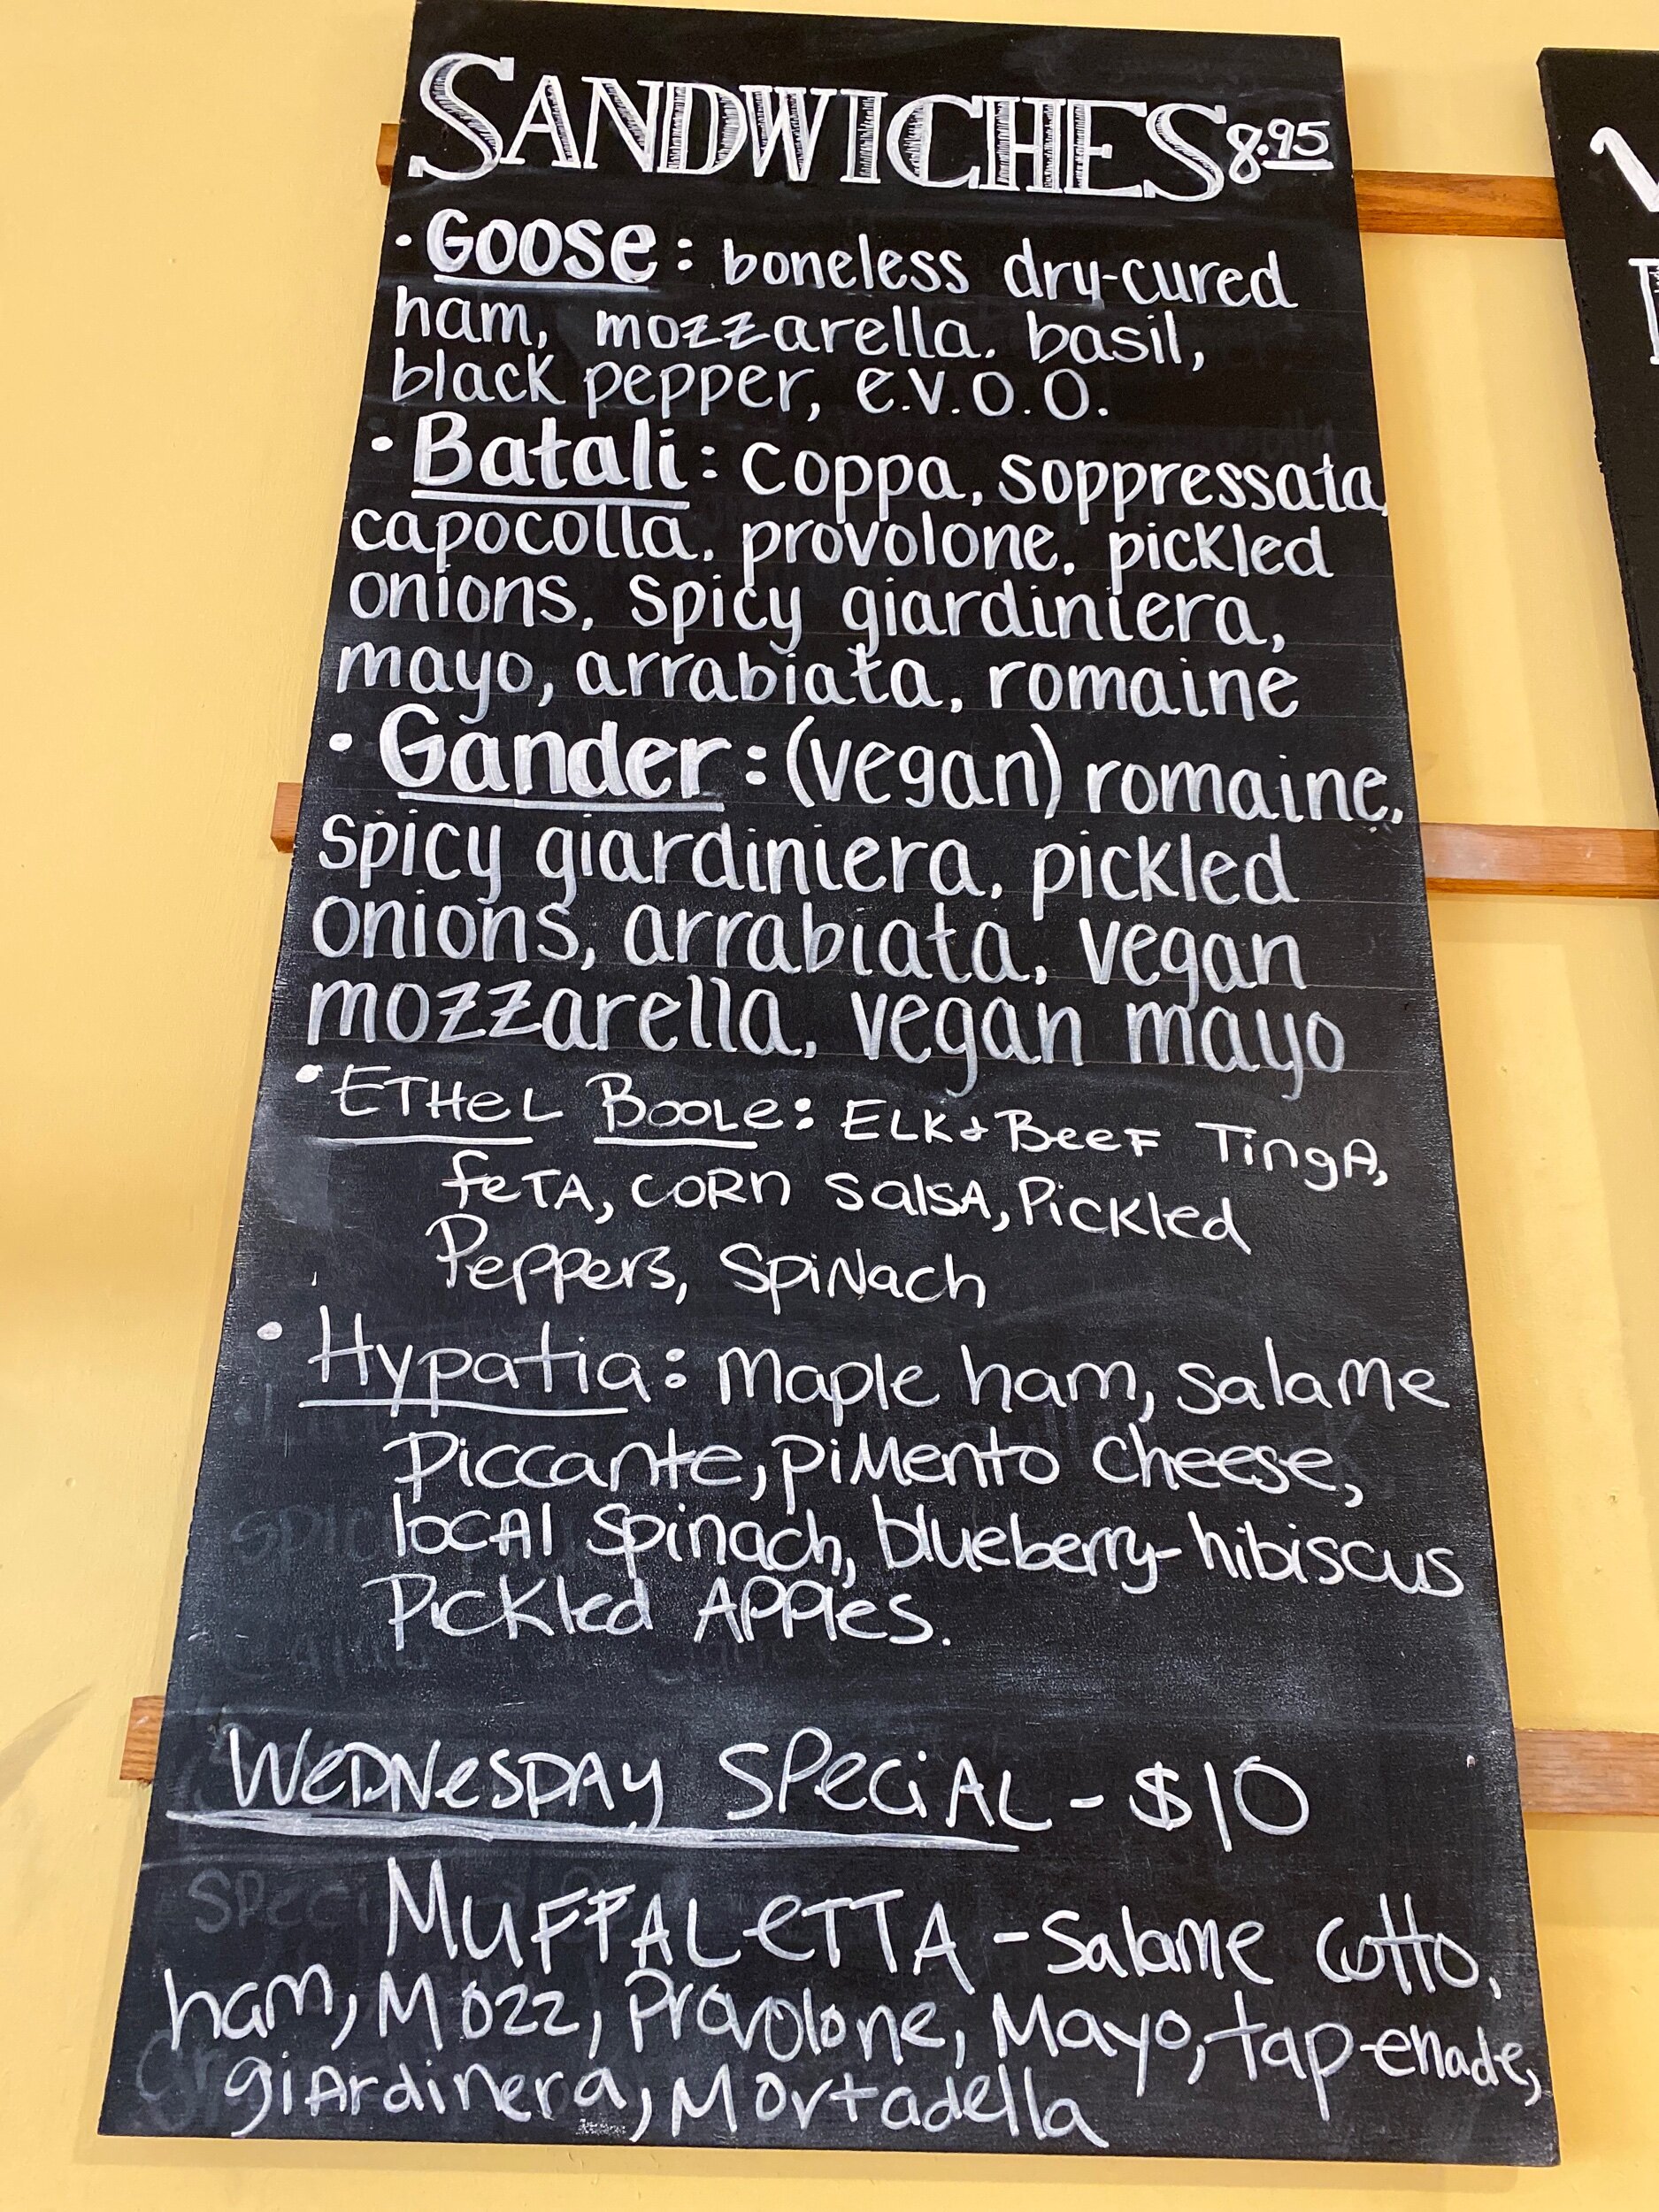 SANDWICHES 8.95
• Goose: boneless dry-cured
ham, mozzarella, basil,
black pepper, e.v.o.o.
• Batali: coppa, soppressata,
capocolla, provolone, pickled
onions, spicy giardiniera,
mayo, arrabiata, romaine
• Gander: (vegan) romaine,
spicy giardiniera, pickled
onions, arrabiata, vegan
mozzarella, vegan mayo
• ETHeL BOOLe: ELK + BeeF TingA,
feTA, CORn SalsA, Pickled
PePPeRs, SpiNach
• Hypatia: Maple ham, Salame
Piccante, PiMento Cheese,
locAl Spinach, blueberry-hibiscus
Pickled APPles.
WeDNesDAy SPeciAL - $10
MUFFALeTTA - Salame Cotto,
ham, Mozz, Provolone, Mayo, tap-enade,
giArdinera, Mortadella